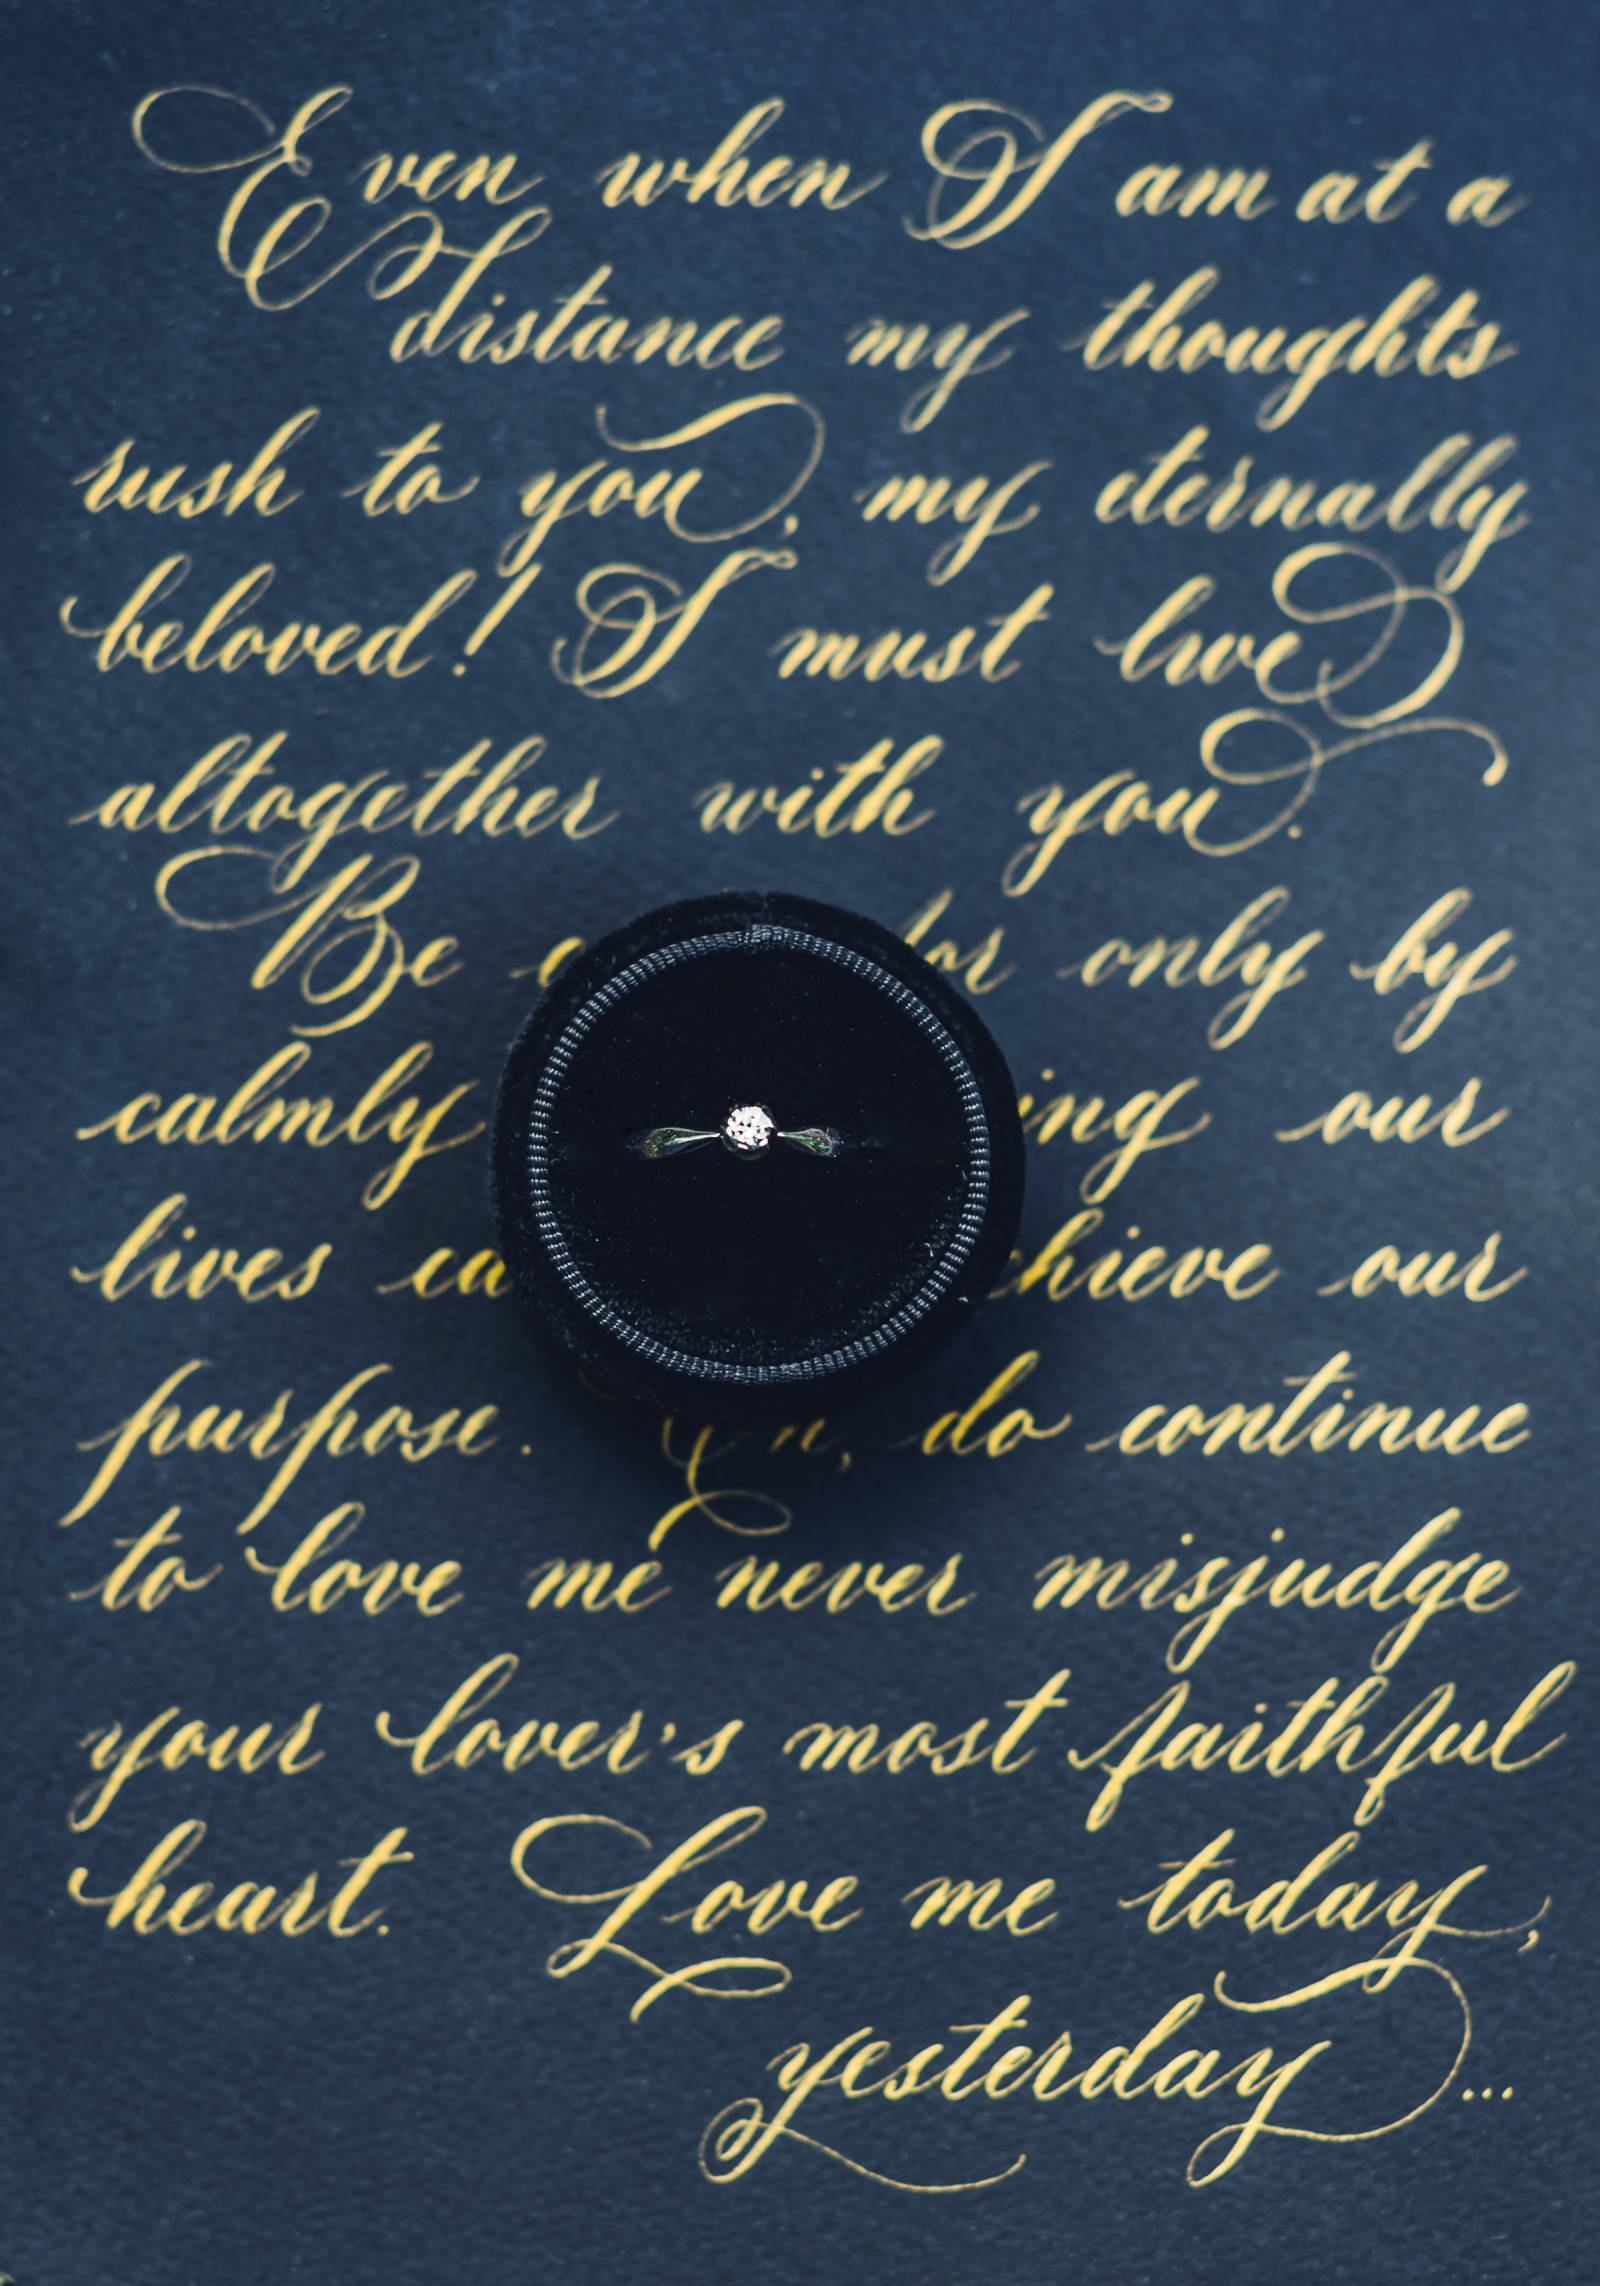 Even when I am at a
distance my thoughts
rush to you, my eternally
beloved! I must live
altogether with you.
Be only by
calmly our
lives our
purpose. do continue
to love me never misjudge
your lover's most faithful
heart. Love me today,
yesterday...